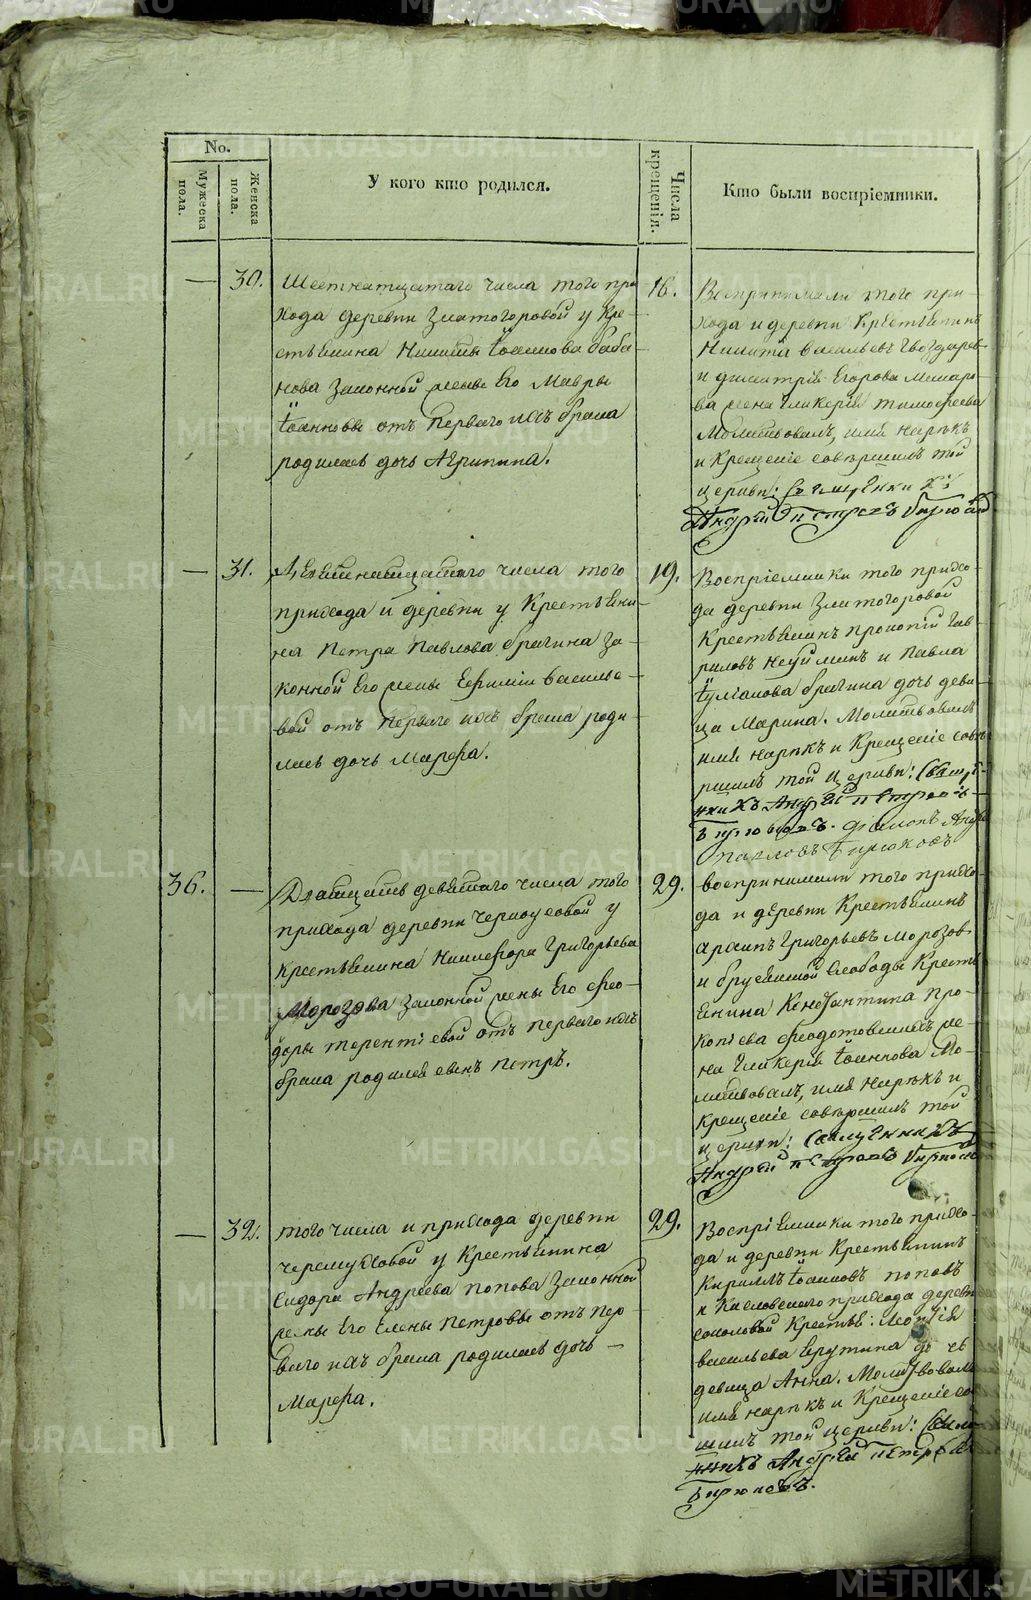 No.
Мужеска пола.
Женска пола.
У кого кто родился.
Числа крещенія.
Кто были воспріемники.
30.
Шестнатцатаго числа того при
хода деревни Златогоровой у кре-
стьянина Никиты Іоаннова баба-
нова законной жены Его Мавры
Іоанновы отъ перваго ихъ брака
родилась дочь Агрипина.
16.
Воспринимали того при-
хода и деревни Крестьянинъ
Никита васильевъ
и димитрія Егорова
ва жена гликерія тимофеева
Молитвовалъ, имя нарѣкъ
и Крещеніе совершилъ той
церкви: Священникъ
Андрей Петровъ Бирюковъ
31.
Девятнатцатаго числа того
прихода и деревни у Крестьяни-
на Петра Павлова брагина за-
конной Его жены Ефимии василье-
вой отъ перваго ихъ брака роди-
лась дочь Марфа.
19.
Воспріемники того прихо-
да деревни Златогоровой
Крестьянинъ прокопій гав-
риловъ неуйминъ и Павла
брагина дочь деви-
ца Марина. Молитвовалъ
имя нарѣкъ и Крещеніе совѣ-
ршилъ той церкви: Свяще-
нникъ Андрей Петровъ
Бирюковъ. диаконъ
павловъ Бирюковъ
36.
Дватцать девятаго числа того
прихода деревни Черноусовой у
Крестьянина Никифора Григорьева
Морозова законной жены Его фео-
доры терентіевой отъ перваго ихъ
брака родился сынъ Петръ.
29.
воспринимали того прихо-
да и деревни Крестьянинъ
архипъ Григорьевъ Морозовъ
и брусянской слободы Кресть-
янина Константина про-
копіева же-
на гликерія Іоаннова Мо-
литвовалъ, имя нарѣкъ и
Крещеніе совершилъ той
церкви: Священникъ
Андрей Петровъ Бирюковъ
32.
того числа и прихода деревни
черемуховой у Крестьянина
Сидора Андреева попова законной
жены Его Елены Петровы отъ пер-
ваго ихъ брака родилась дочь —
Марфа.
29.
Воспріемники того прихо-
да и деревни Крестьянинъ
Кириллъ Іоанновъ поповъ
и Кисловскаго прихода деревни
соколовой Крестья:
васильева дочь
девица Анна. Молитвовалъ
имя нарѣкъ и Крещеніе со-
шилъ той церкви: Свяще-
нникъ Андрей Петровъ
Бирюковъ.
METRIKI.GASO-URAL.RU